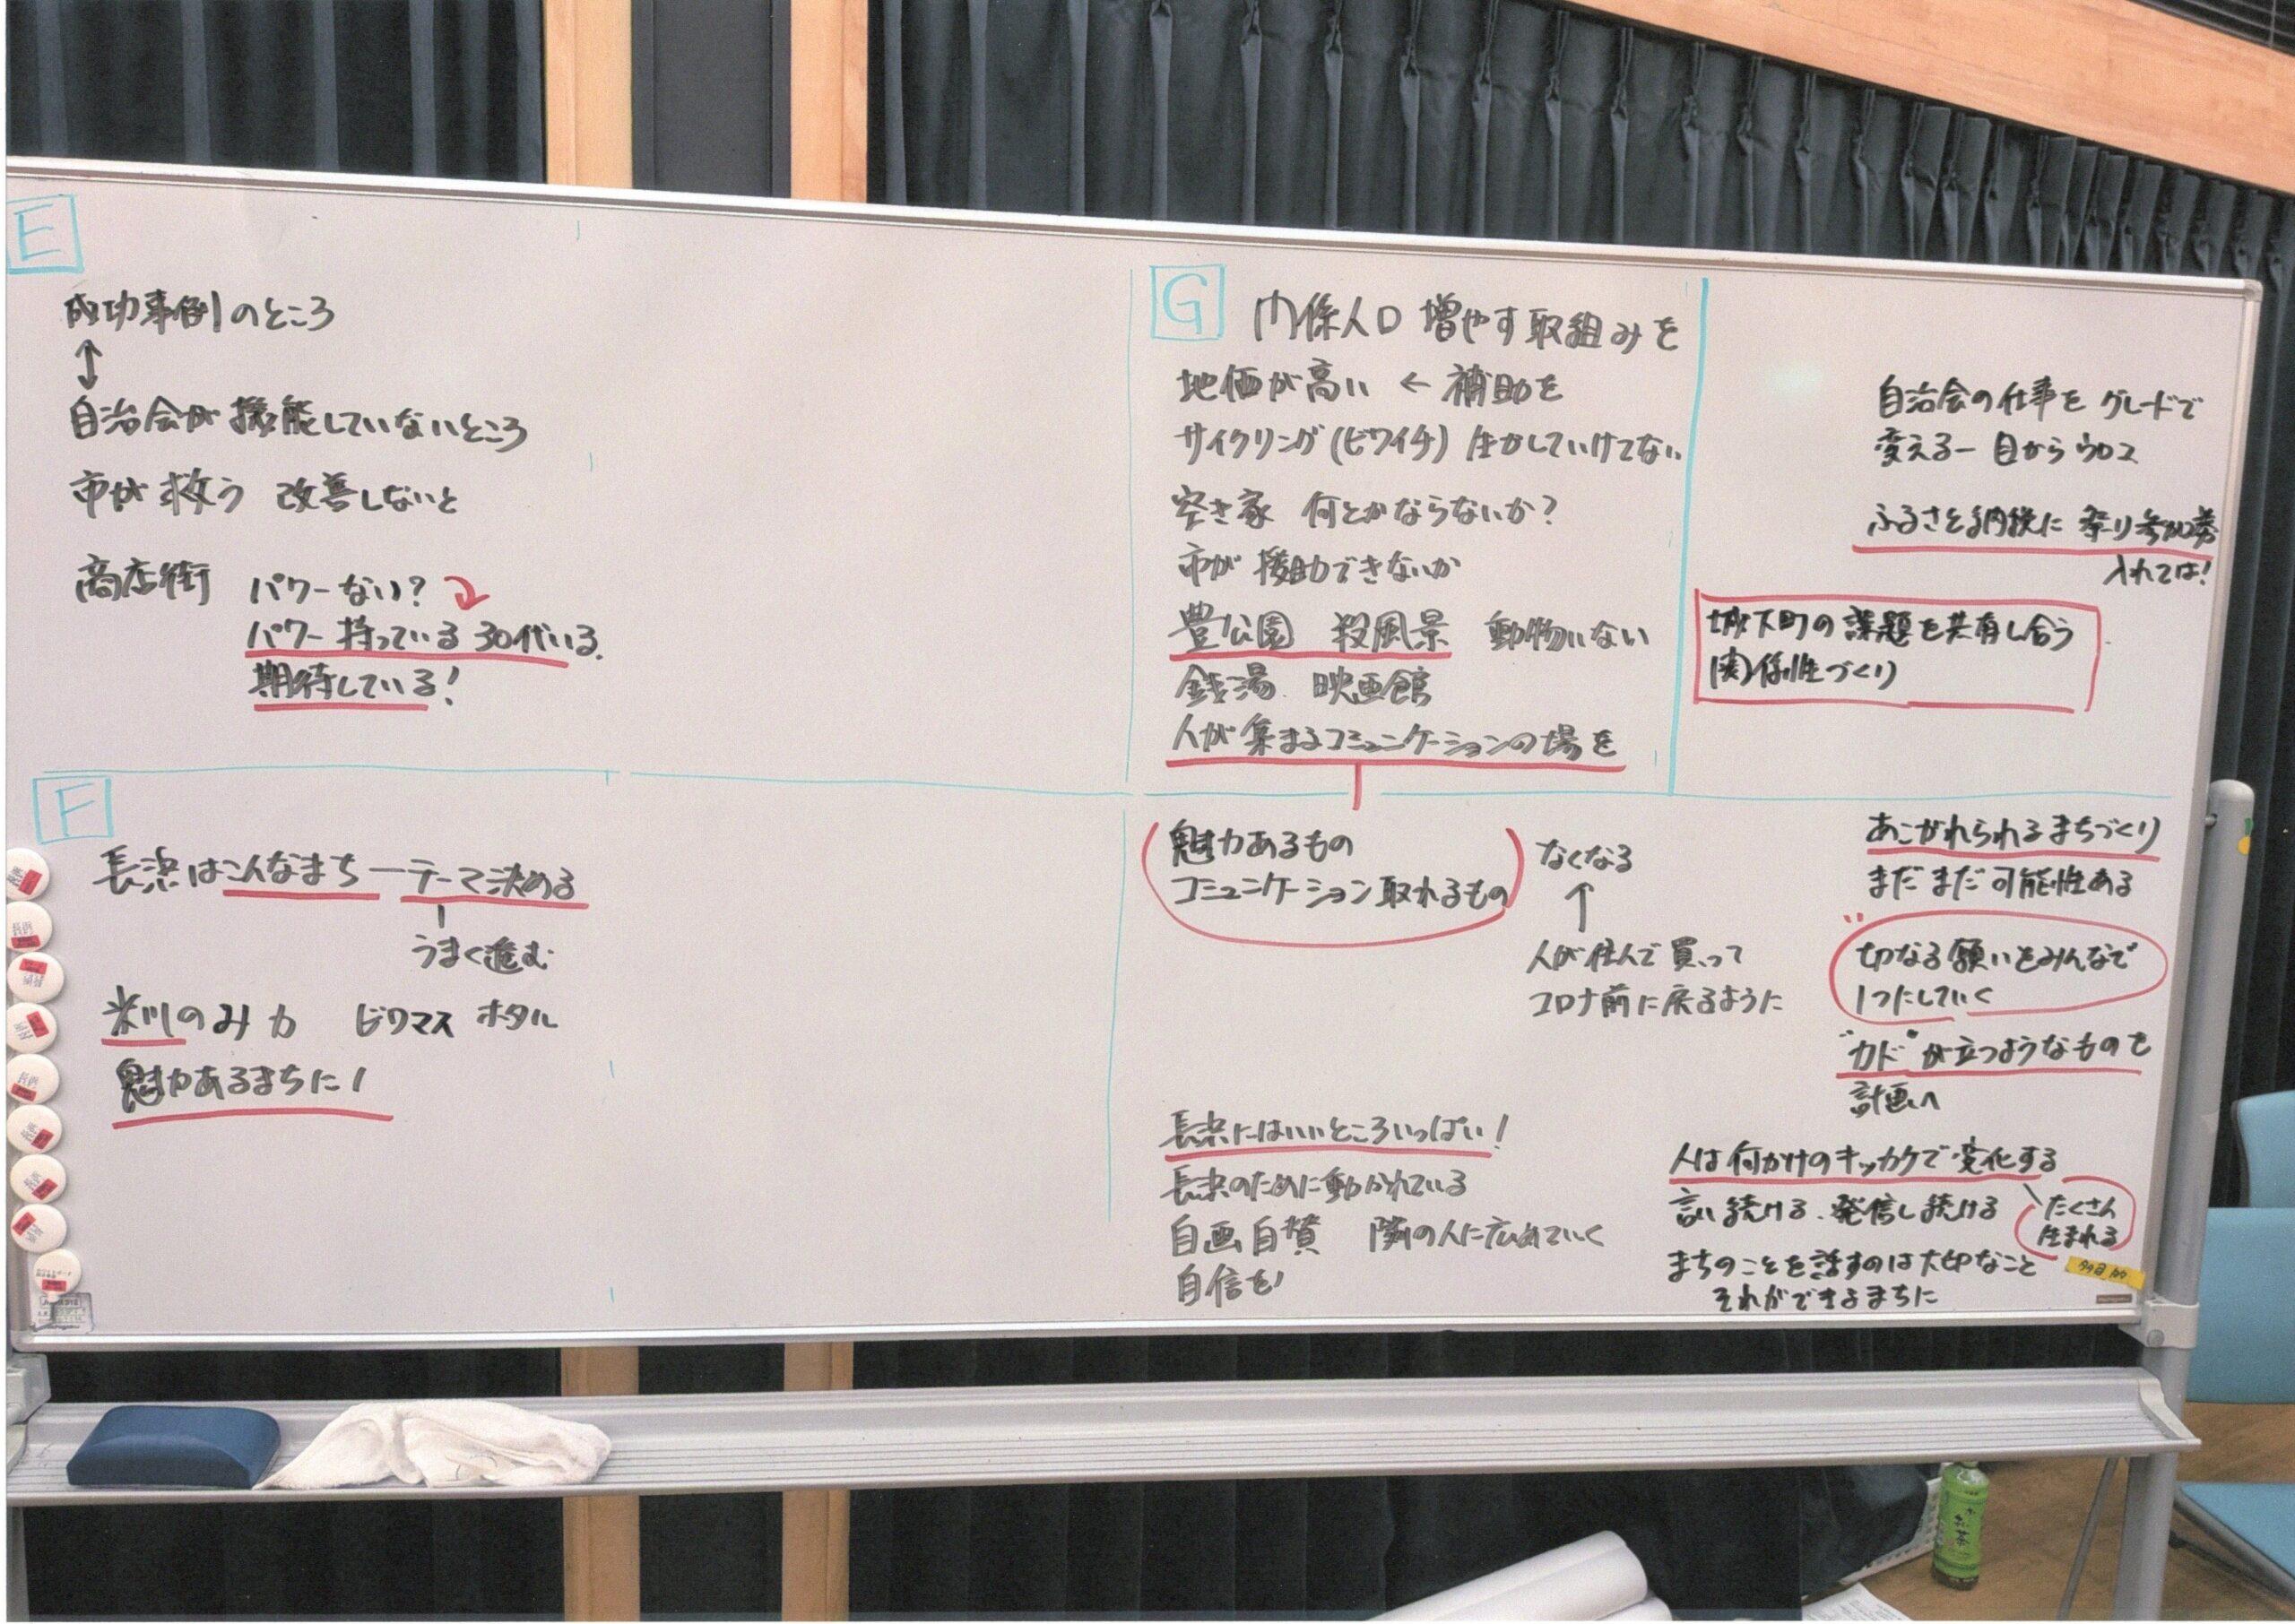 E
成功事例のところ
↕
自治会が機能していないところ
市が救う 改善しないと
商店街 パワーない?
パワー持っている 30代いる.
期待している!
F
長浜はこんなまち ー テーマ決める
うまく進む
米川のみ力 ビワマス ホタル
魅力あるまちに!
G 関係人口 増やす取組みを
地価が高い ← 補助を
サイクリング(ビワイチ) 生かしていけてない
空き家 何とかならないか?
市が援助できないか
豊公園 殺風景 動物いない
銭湯. 映画館
人が集まるコミュニケーションの場を
魅力あるもの
コミュニケーション取れるもの
なくなる
↑
人が住んで買って
コロナ前に戻るように
長浜にはいいところいっぱい!
長浜のために動かれている
自画自賛 隣の人に広めていく
自信を!
自治会の仕事を グレードで
変える ー 目からウロコ
ふるさと納税に 祭り参加券
入れては!
城下町の課題を共有し合う
関係性づくり
あこがれられるまちづくり
まだまだ可能性ある
切なる願いをみんなで
1つにしていく
"カド"が立つようなものを
計画へ
人は何かけのキッカケで変化する
たくさん
生まれる
言い続ける、発信し続ける
まちのことを話すのは大切なこと
それができるまちに
多目的
お茶